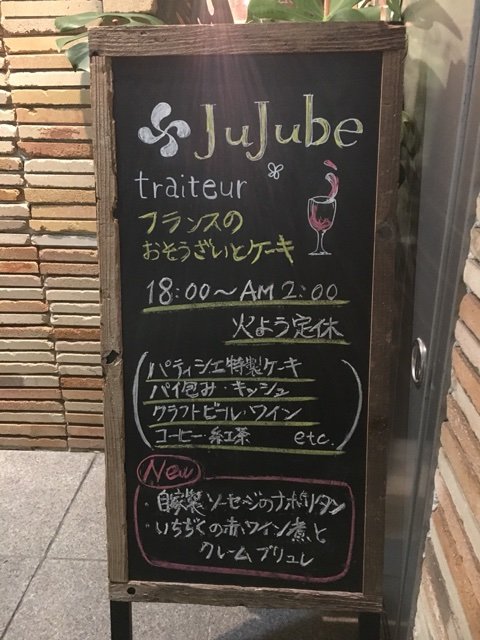 JuJube
traiteur
フランスの
おそうざいとケーキ
18:00〜AM 2:00
火よう定休
パティシエ特製ケーキ
パイ包み・キッシュ
クラフトビール・ワイン
コーヒー・紅茶 etc.
New
・自家製ソーセージのナポリタン
・いちぢくの赤ワイン煮と
クレームブリュレ